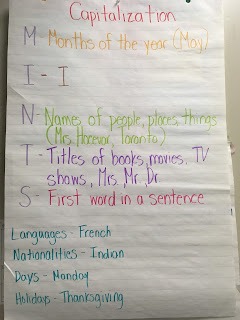 Capitalization
M - Months of the year (May)
I - I
N - Names of people, places, things
(Mrs. Hocevar, Toronto)
T - Titles of books, movies, TV
shows, Mrs. Mr. Dr
S - First word in a sentence
Languages - French
Nationalities - Indian
Days - Monday
Holidays - Thanksgiving